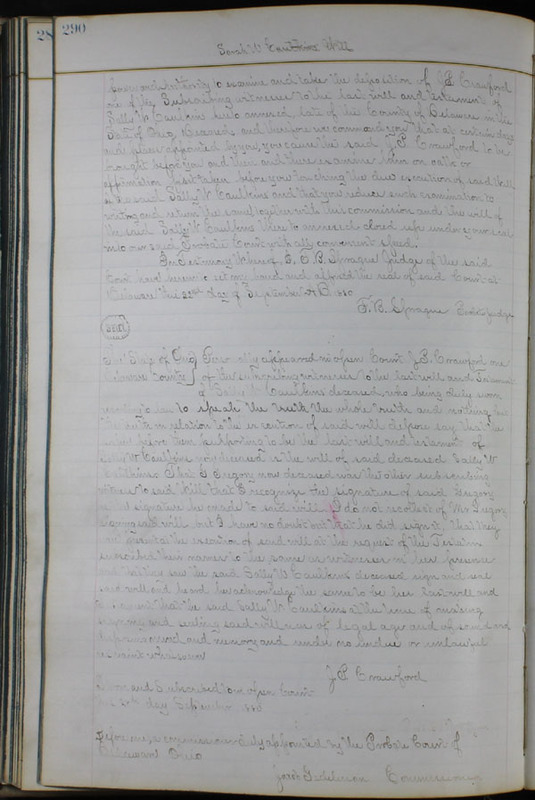 28 290
Sarah W Caulkins Will
power and authority to examine and take the deposition of J.P. Crawford
one of the Subscribing witnesses to the last will and testament of
Sally W. Caulkins hereto annexed, late of the County of Delaware in the
State of Ohio Deceased, and therefore we command you that at certain day
and place appointed by you, you cause the said J.P. Crawford to be
brought before you and then and there examine him on oath or
affirmation first taken before you touching the due execution of said Will
of the said Sally W. Caulkins and that you reduce such examination to
writing and return the same together with this commission and the will of
the said Sally W. Caulkins there to annexed closed up under your seal
into our said Probate Court with all convenient speed.
In Testimony Whereof, I, F.B. Sprague Judge of the said
Court have hereunto set my hand and affixed the seal of said Court at
Delaware this 22nd day of September A.D. 1880
F.B. Sprague Judge
Seal
The State of Ohio } Personally appeared in open Court J.P. Crawford one
Delaware County } of the subscribing witnesses to the last will and Testament
of Sally W. Caulkins deceased, who being duly sworn
according to law to speak the truth the whole truth and nothing but
the truth in relation to the execution of said will depose say that the
before them purporting to be the last will and testament of
Sally W Caulkins now deceased is the will of said deceased Sally W
Caulkins. That Gregory now deceased was the other subscribing
witness to said Will that I recognize the signature of said Gregory
as the signature he made to said will. I do not recollect of Mr Gregory
signing said will, but I have no doubt but that he did sign it, That they
were present at the execution of said will at the request of the Testatrix
subscribed their names to the same as witnesses in her presence
and that they saw the said Sally W. Caulkins deceased sign and seal
said will and heard her acknowledge the same to be her last will and
testament that the said Sally W. Caulkins at the time of making
signing and sealing said will was of legal age and of sound and
disposing mind and memory and under no undue or unlawful
restraint whatsoever
J.P. Crawford
Sworn and Subscribed to in open Court
this day September 1880
Before me, a commissioner duly appointed by the Probate Court of
Delaware Ohio
Jacob Commissioner